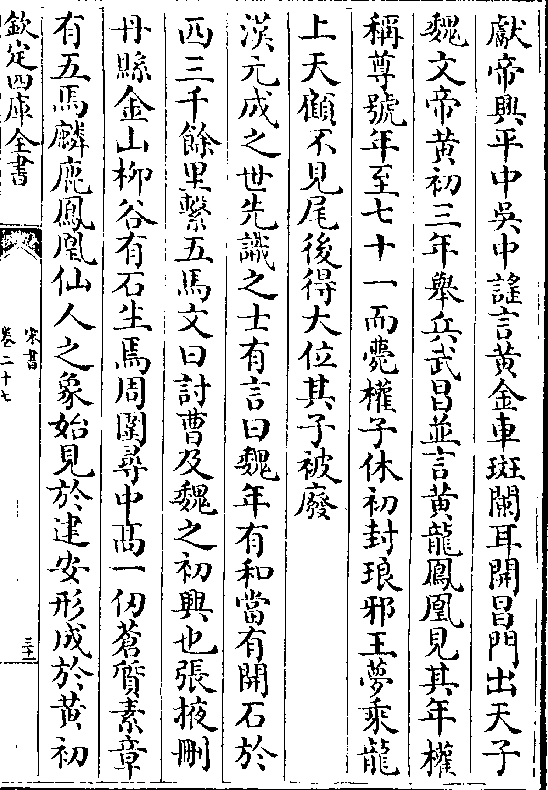 獻帝興平中吳中謡言黄金車斑闌耳開昌門出天子
魏文帝黄初三年舉兵武昌並言黄龍鳳凰見其年權
稱尊號年至七十一而薨權子休初封琅邪王夢乘龍
上天顧不見尾後得大位其子被廢
漢元成之世先識之士有言曰魏年有和當有開石於
西三千餘里繫五馬文曰討曹及魏之初興也張掖刪
丹縣金山柳谷有石生焉周圍尋中高一仞蒼質素章
有五馬麟鹿鳳凰仙人之象始見於建安形成於黄初
欽定四庫全書
宋書
卷二十七
三十